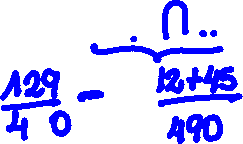 ∩..
129/40 - (12+45)/490